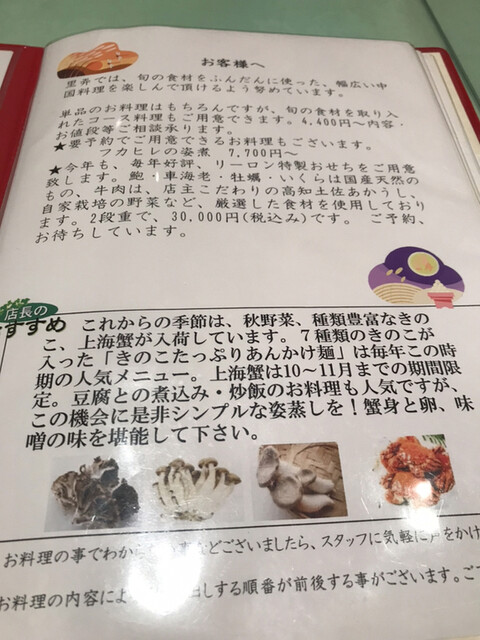 お客様へ
里弄では、旬の食材をふんだんに使った、幅広い中
国料理を楽しんで頂けるよう努めています。
単品のお料理はもちろんですが、旬の食材を取り入
れたコース料理もご用意できます。4,400円～内容・
お値段等ご相談承ります。
★要予約でご用意できるお料理もございます。
フカヒレの姿煮 7,700円～
★今年も、毎年好評、リーロン特製おせちをご用意
致します。鮑・車海老・牡蠣・いくらは国産天然の
もの、牛肉は、店主こだわりの高知土佐あかうし、
自家栽培の野菜など、厳選した食材を使用しており
ます。2段重で、30,000円(税込み)です。ご予約、
お待ちしています。
店長の
すすめ
これからの季節は、秋野菜、種類豊富なきの
こ、上海蟹が入荷しています。７種類のきのこが
入った「きのこたっぷりあんかけ麺」は毎年この時
期の人気メニュー。上海蟹は10～11月までの期間限
定。豆腐との煮込み・炒飯のお料理も人気ですが、
この機会に是非シンプルな姿蒸しを！蟹身と卵、味
噌の味を堪能して下さい。
お料理の事でわから などございましたら、スタッフに気軽に声をかけ
お料理の内容によ しする順番が前後する事がございます。ご